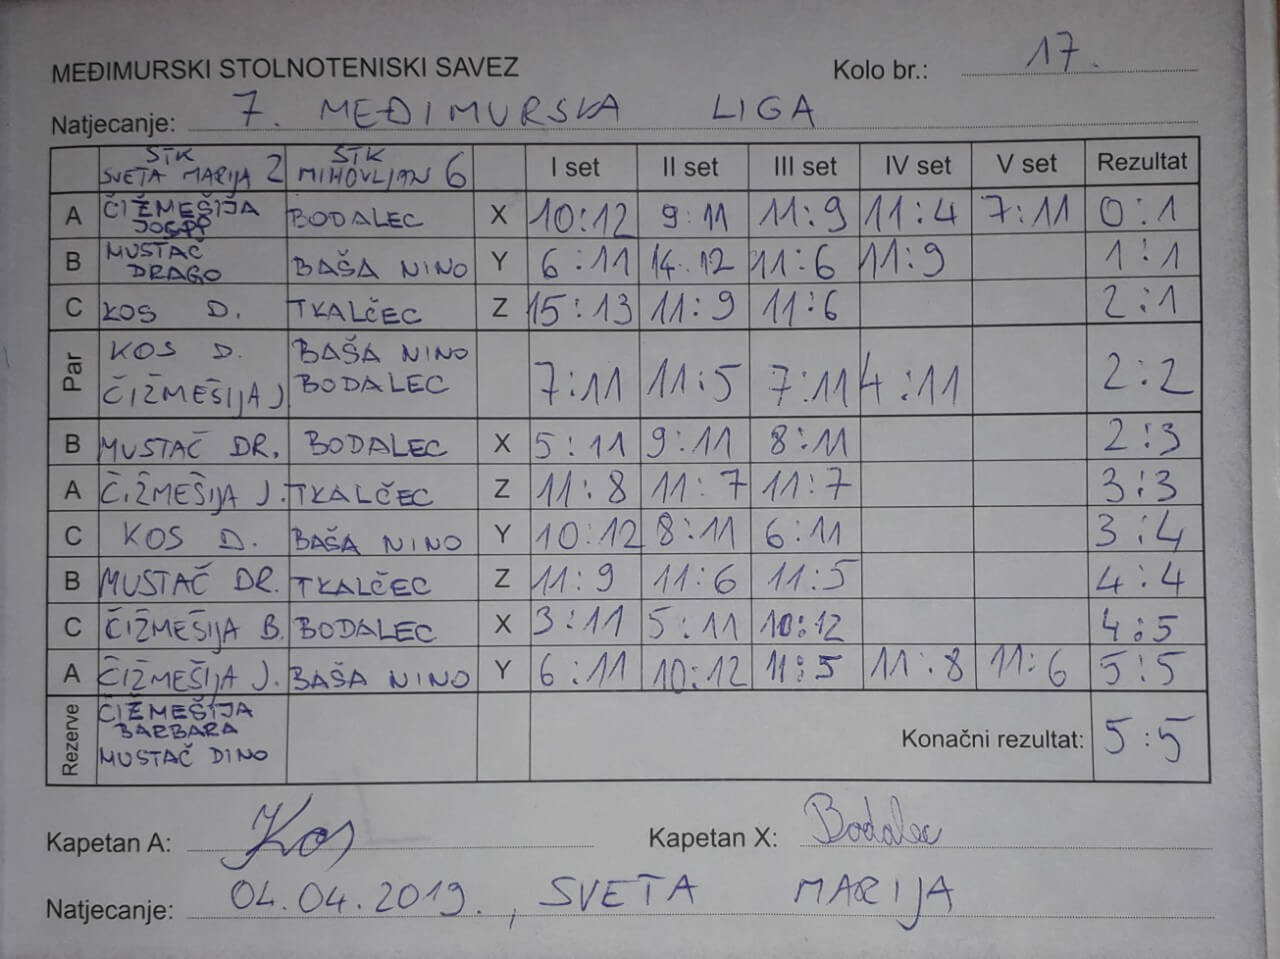 MEĐIMURSKI STOLNOTENISKI SAVEZ
Kolo br.: 17.
Natjecanje: 7. MEĐIMURSKA LIGA
STK SVETA MARIJA 2 STK MIHOVLJAN 6 I set II set III set IV set V set Rezultat
A ČIŽMEŠIJA JOSIP BODALEC X 10:12 9:11 11:9 11:4 7:11 0:1
B MUSTAČ DRAGO BAŠA NINO Y 6:11 14:12 11:6 11:9 1:1
C KOS D. TKALČEC Z 15:13 11:9 11:6 2:1
Par KOS D. ČIŽMEŠIJA J BAŠA NINO BODALEC 7:11 11:5 7:11 4:11 2:2
B MUSTAČ DR. BODALEC X 5:11 9:11 8:11 2:3
A ČIŽMEŠIJA J. TKALČEC Z 11:8 11:7 11:7 3:3
C KOS D. BAŠA NINO Y 10:12 8:11 6:11 3:4
B MUSTAČ DR. TKALČEC Z 11:9 11:6 11:5 4:4
C ČIŽMEŠIJA B. BODALEC X 3:11 5:11 10:12 4:5
A ČIŽMEŠIJA J. BAŠA NINO Y 6:11 10:12 11:5 11:8 11:6 5:5
Rezerve ČIŽMEŠIJA BARBARA MUSTAČ DINO Konačni rezultat: 5:5
Kapetan A: Kos Kapetan X: Bodalec
Natjecanje: 04.04.2019., SVETA MARIJA